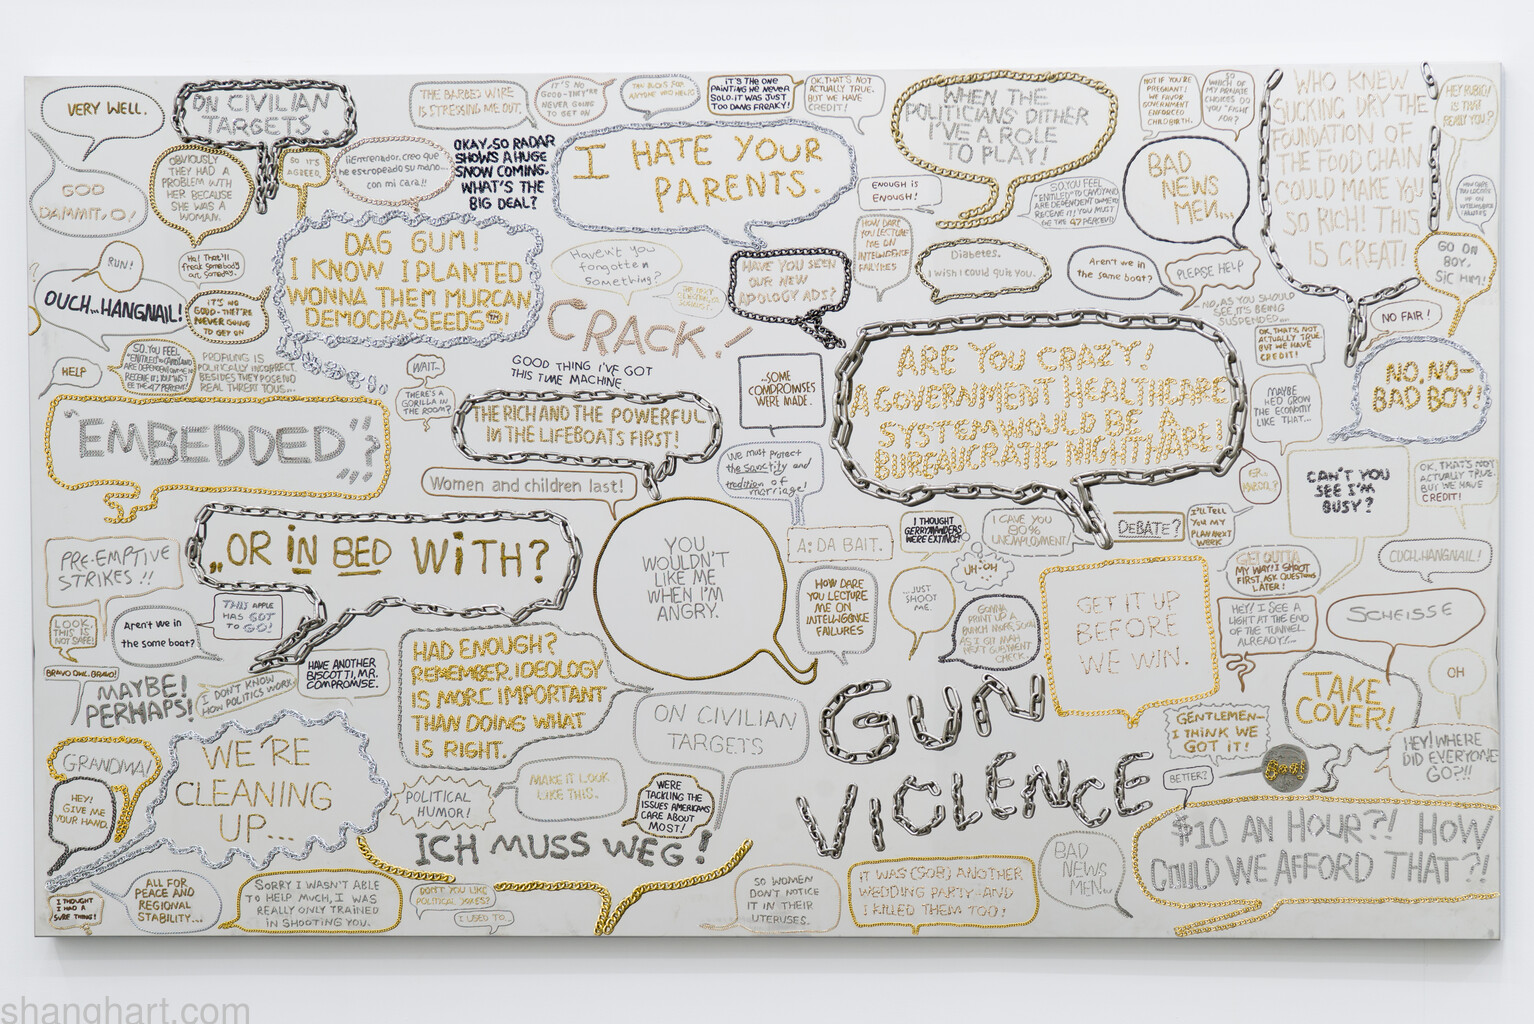 VERY WELL.
ON CIVILIAN
TARGETS.
THE BARBED WIRE
IS STRESSING ME OUT.
IT'S NO
GOOD-THEY'RE
NEVER GOING
TO GET ON
IT'S THE ONE
PAINTING HE NEVER
SOLD. IT WAS JUST
TOO DANG FREAKY!
OK, THAT'S NOT
ACTUALLY TRUE.
BUT WE HAVE
CREDIT!
WHEN THE
POLITICIANS DITHER
I'VE A ROLE
TO PLAY!
NOT IF YOU'RE
PREGNANT!
WE FAVOR
GOVERNMENT
ENFORCED
CHILDBIRTH.
SO
WHICH OF
MY PRIVATE
CHOICES DO
YOU "FIGHT
FOR"?
WHO KNEW
SUCKING DRY THE
FOUNDATION OF
THE FOOD CHAIN
COULD MAKE YOU
SO RICH! THIS
IS GREAT!
HEY RUBIO!
IS THAT
REALLY YOU?
GOD
DAMMIT, O!
OBVIOUSLY
THEY HAD A
PROBLEM WITH
HER BECAUSE
SHE WAS A
WOMAN.
SO IT'S
AGREED.
¡Entrenador, creo que
he estropeado su mano...
con mi cara!!
OKAY, SO RADAR
SHOWS A HUGE
SNOW COMING.
WHAT'S THE
BIG DEAL?
I HATE YOUR
PARENTS.
ENOUGH IS
ENOUGH!
SO, YOU FEEL
BAD
NEWS
MEN...
RUN!
Ha! That'll
freak somebody
out, someday.
DAG GUM!
I KNOW I PLANTED
WONNA THEM MURCAN
DEMOCRA-SEEDS™!
Haven't you
forgotten
something?
HAVE YOU SEEN
OUR NEW
APOLOGY ADS?
HOW DARE
YOU LECTURE
ME ON
INTELLIGENCE
FAILURES
Diabetes.
I wish I could quit you.
Aren't we in
the same boat?
PLEASE HELP
GO ON
BOY.
SIC HIM!
OUCH...HANGNAIL!
IT'S NO
GOOD-THEY'RE
NEVER GOING
TO GET ON
CRACK!
NO, AS YOU SHOULD
SEE, IT'S BEING
SUSPENDED...
NO FAIR!
HELP
SO, YOU FEEL
PROFILING IS
POLITICALLY INCORRECT.
BESIDES THEY POSE NO
REAL THREAT TO US...
WAIT...
THERE'S A
GORILLA IN
THE ROOM?
GOOD THING I'VE GOT
THIS TIME MACHINE
...SOME
COMPROMISES
WERE MADE.
ARE YOU CRAZY!
A GOVERNMENT HEALTHCARE
SYSTEM WOULD BE A
BUREAUCRATIC NIGHTMARE!
OK, THAT'S NOT
ACTUALLY TRUE.
BUT WE HAVE
CREDIT!
NO, NO-
BAD BOY!
MAYBE
HE'D GROW
THE ECONOMY
LIKE THAT...
"EMBEDDED"?
THE RICH AND THE POWERFUL
IN THE LIFEBOATS FIRST!
Women and children last!
We must protect
the sanctity and
tradition of
marriage!
CAN'T YOU
SEE I'M
BUSY?
OK, THAT'S NOT
ACTUALLY TRUE.
BUT WE HAVE
CREDIT!
...OR IN BED WITH?
PRE-EMPTIVE
STRIKES!!
YOU
WOULDN'T
LIKE ME
WHEN I'M
ANGRY.
A: DA BAIT.
I THOUGHT
GERRYMANDERS
WERE EXTINCT?
I GAVE YOU
80%
UNEMPLOYMENT!
DEBATE?
I'LL TELL
YOU MY
PLAN NEXT
WEEK
UH-OH
GET OUTTA
MY WAY! I SHOOT
FIRST, ASK QUESTIONS
LATER!
OUCH...HANGNAIL!
LOOK,
THIS IS
NOT SAFE!
Aren't we in
the same boat?
THIS APPLE
HAS GOT
TO GO!
HOW DARE
YOU LECTURE
ME ON
INTELLIGENCE
FAILURES
...JUST
SHOOT
ME.
GONNA
PRINT UP A
BUNCH MORE, SOON
AS I GIT MAH
NEXT GUBMENT
CHECK.
GET IT UP
BEFORE
WE WIN.
HEY! I SEE A
LIGHT AT THE END
OF THE TUNNEL
ALREADY!...
SCHEISSE
BRAVO OWL, BRAVO!
MAYBE!
PERHAPS!
I DON'T KNOW
HOW POLITICS WORK
HAVE ANOTHER
BISCOTTI, MR.
COMPROMISE.
HAD ENOUGH?
REMEMBER: IDEOLOGY
IS MORE IMPORTANT
THAN DOING WHAT
IS RIGHT.
ON CIVILIAN
TARGETS
GUN
VIOLENCE
GENTLEMEN-
I THINK WE
GOT IT!
TAKE
COVER!
OH
HEY! WHERE
DID EVERYONE
GO?!!
BETTER?
GRANDMA!
HEY!
GIVE ME
YOUR HAND.
WE'RE
CLEANING
UP...
POLITICAL
HUMOR!
MAKE IT LOOK
LIKE THIS.
WE'RE
TACKLING THE
ISSUES AMERICANS
CARE ABOUT
MOST!
ICH MUSS WEG!
$10 AN HOUR?! HOW
COULD WE AFFORD THAT?!
I THOUGHT
I HAD A
SURE THING!
ALL FOR
PEACE AND
REGIONAL
STABILITY...
SORRY I WASN'T ABLE
TO HELP MUCH, I WAS
REALLY ONLY TRAINED
IN SHOOTING YOU.
DON'T YOU LIKE
POLITICAL JOKES?
I USED TO...
SO WOMEN
DON'T NOTICE
IT IN THEIR
UTERUSES.
IT WAS (SOB) ANOTHER
WEDDING PARTY-AND
I KILLED THEM TOO!
BAD
NEWS
MEN...
shanghart.com